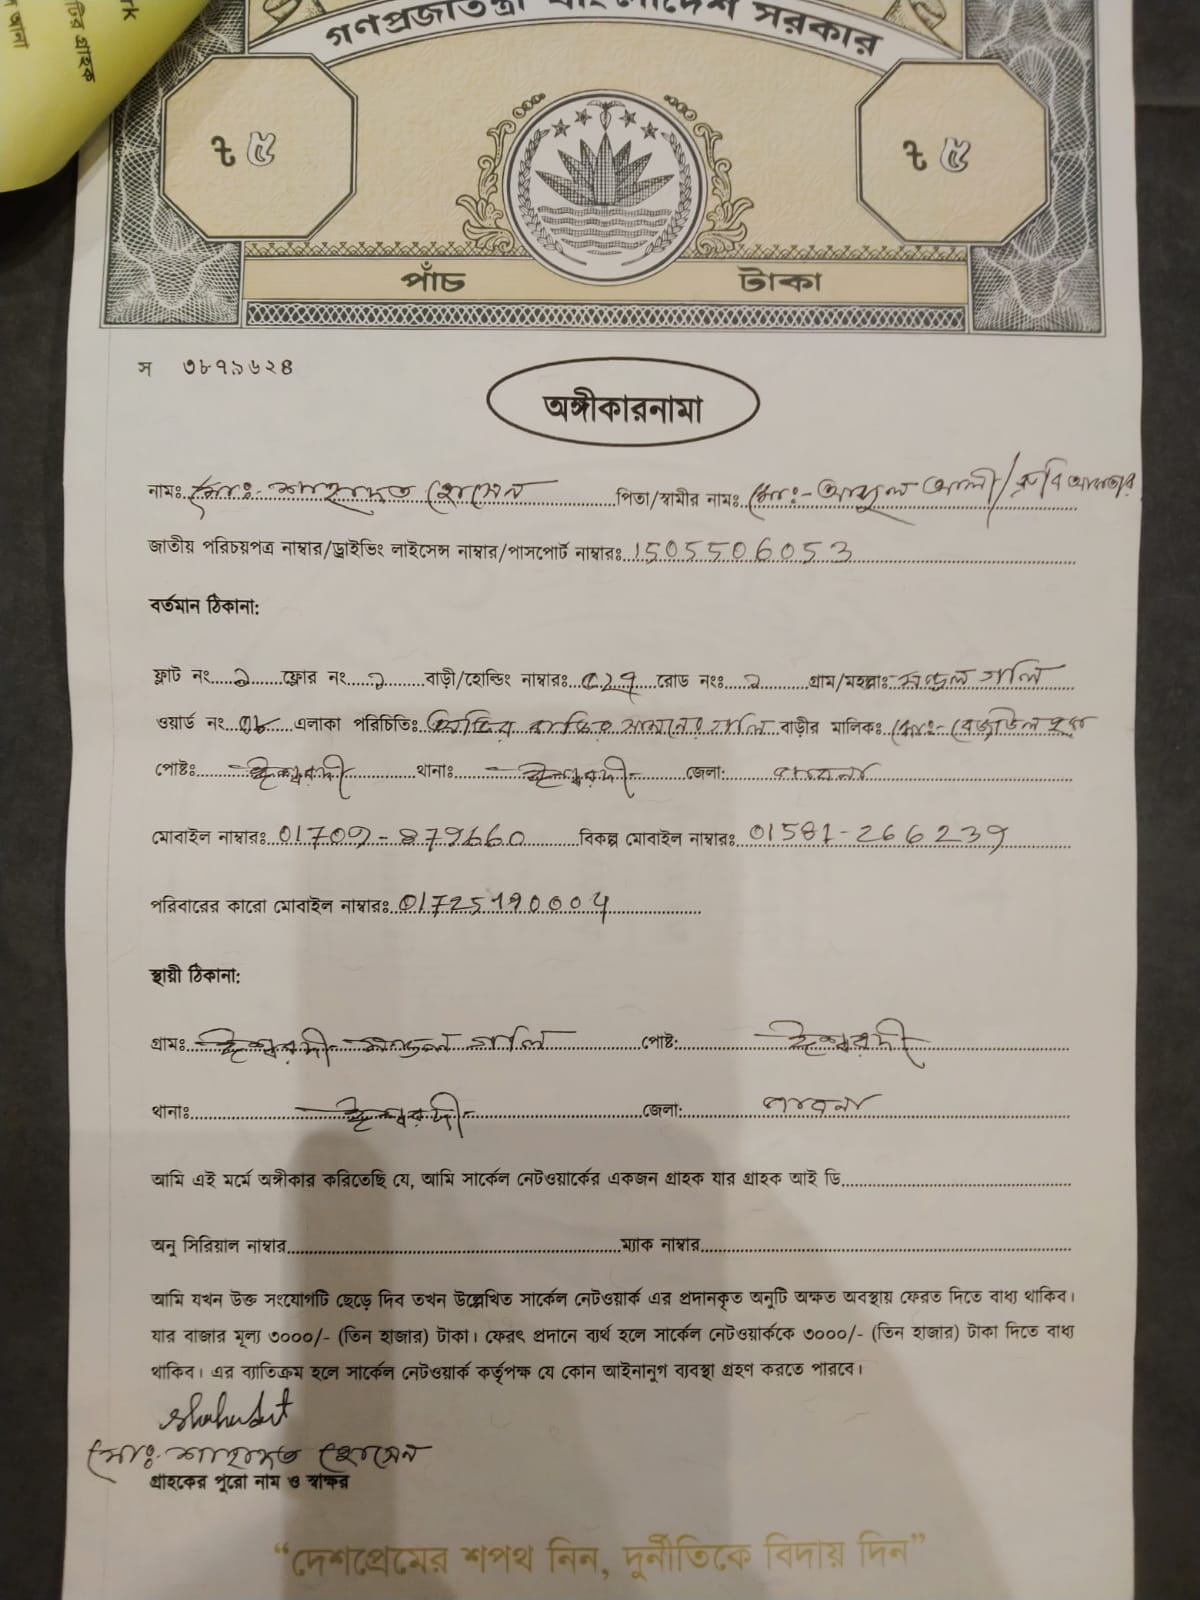 rk
টির গ্রাহক
আনা
গণপ্রজাতন্ত্রী বাংলাদেশ সরকার
৳ ৫ ৳ ৫
পাঁচ টাকা
স ৩৮৭৯৬২৪
অঙ্গীকারনামা
নামঃ মোঃ- শাহাদত হোসেন পিতা/স্বামীর নামঃ মোঃ- আব্দুল আলী/রুবি আকতার
জাতীয় পরিচয়পত্র নাম্বার/ড্রাইভিং লাইসেন্স নাম্বার/পাসপোর্ট নাম্বারঃ 1505506053
বর্তমান ঠিকানা:
ফ্লাট নং ফ্লোর নং বাড়ী/হোল্ডিং নাম্বারঃ রোড নংঃ ২ গ্রাম/মহল্লাঃ মন্ডল গলি
ওয়ার্ড নং ০৮ এলাকা পরিচিতিঃ সামনের গলি বাড়ীর মালিকঃ মোঃ- হক
পোষ্টঃ ঈশ্বরদী থানাঃ ঈশ্বরদী জেলা: পাবনা
মোবাইল নাম্বারঃ বিকল্প মোবাইল নাম্বারঃ 01581-266239
পরিবারের কারো মোবাইল নাম্বারঃ
স্থায়ী ঠিকানা:
গ্রামঃ ঈশ্বরদী মন্ডল গলি পোষ্ট: ঈশ্বরদী
থানাঃ ঈশ্বরদী জেলা: পাবনা
আমি এই মর্মে অঙ্গীকার করিতেছি যে, আমি সার্কেল নেটওয়ার্কের একজন গ্রাহক যার গ্রাহক আই ডি
অনু সিরিয়াল নাম্বার ম্যাক নাম্বার
আমি যখন উক্ত সংযোগটি ছেড়ে দিব তখন উল্লেখিত সার্কেল নেটওয়ার্ক এর প্রদানকৃত অনুটি অক্ষত অবস্থায় ফেরত দিতে বাধ্য থাকিব।
যার বাজার মূল্য ৩০০০/- (তিন হাজার) টাকা। ফেরৎ প্রদানে ব্যর্থ হলে সার্কেল নেটওয়ার্ককে ৩০০০/- (তিন হাজার) টাকা দিতে বাধ্য
থাকিব। এর ব্যাতিক্রম হলে সার্কেল নেটওয়ার্ক কর্তৃপক্ষ যে কোন আইনানুগ ব্যবস্থা গ্রহণ করতে পারবে।
মোঃ- শাহাদত হোসেন
গ্রাহকের পুরো নাম ও স্বাক্ষর
“দেশপ্রেমের শপথ নিন, দুর্নীতিকে বিদায় দিন”